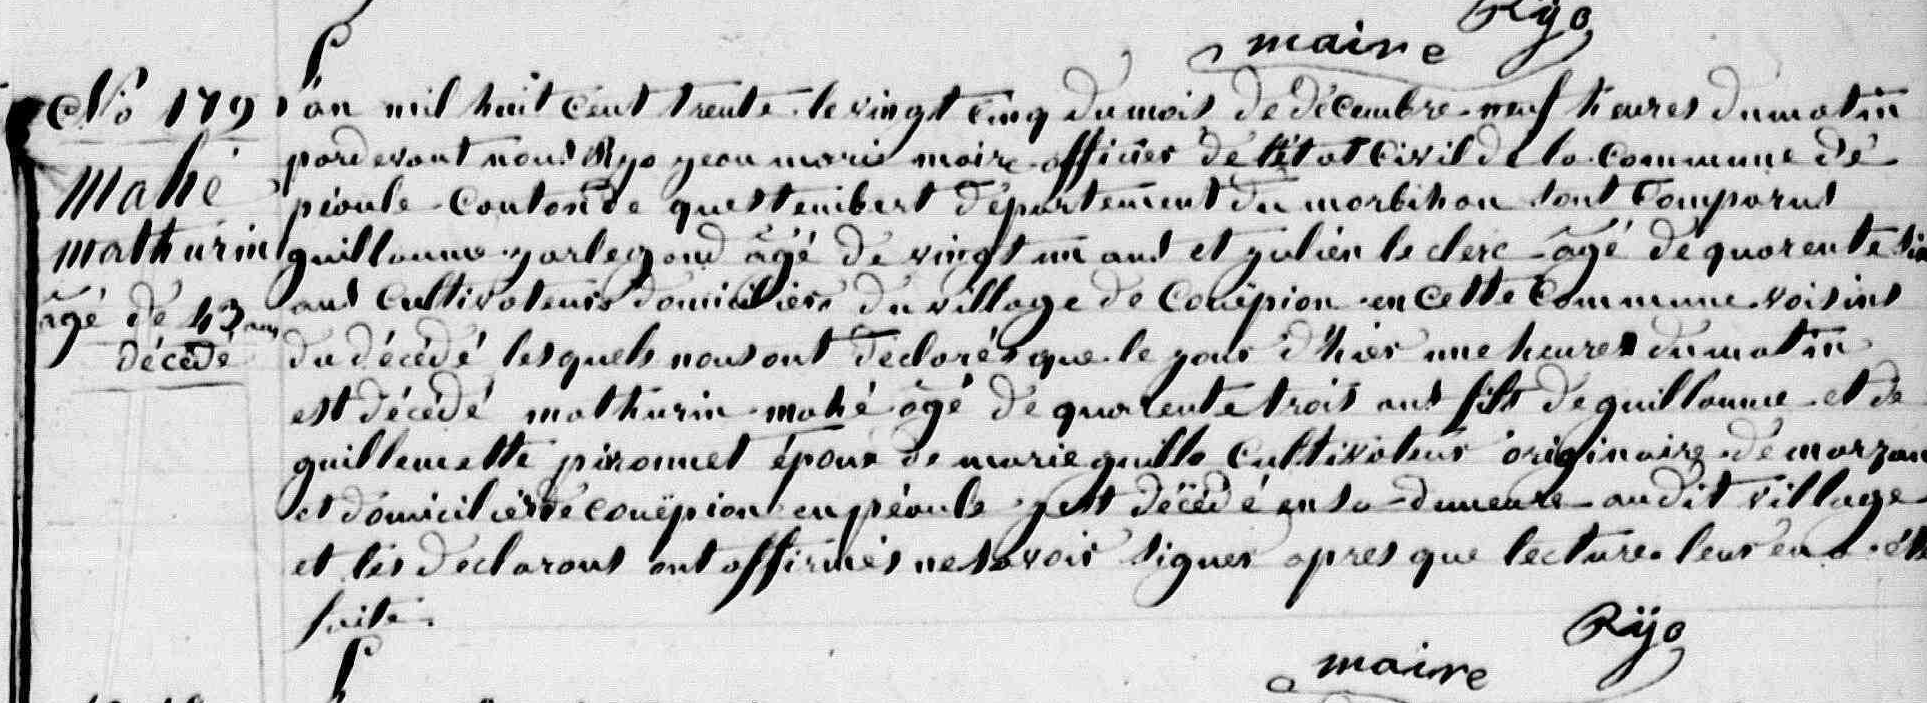 Rÿo
maire
No 179
Mahé
mathurin
âgé de 43 ans
décédé
L'an mil huit cent trente le vingt cinq du mois de décembre neuf heures du matin
pardevant nous Ryo jean marie maire officier de l'état civil de la commune de
péaule canton de questembert département du morbihan sont comparus
guillaume jarlegand âgé de vingt un ans et julien le clerc âgé de quarente six
ans cultivateurs domiciliers du village de couëpion en cette commune voisins
du décédé lesquels nous ont declarés que le jour d'hier une heures du matin
est décédé mathurin mahé âgé de quarente trois ans fils de guillaume et de
guillemette pironnet époux de marie guillo cultivateur originaire de marzan
et domicilier de couëpion en péaule y est décédé en sa demeure audit village
et les déclarans ont affirmés ne savoir signer apres que lecture leur en a été
faite.
Rÿo
maire